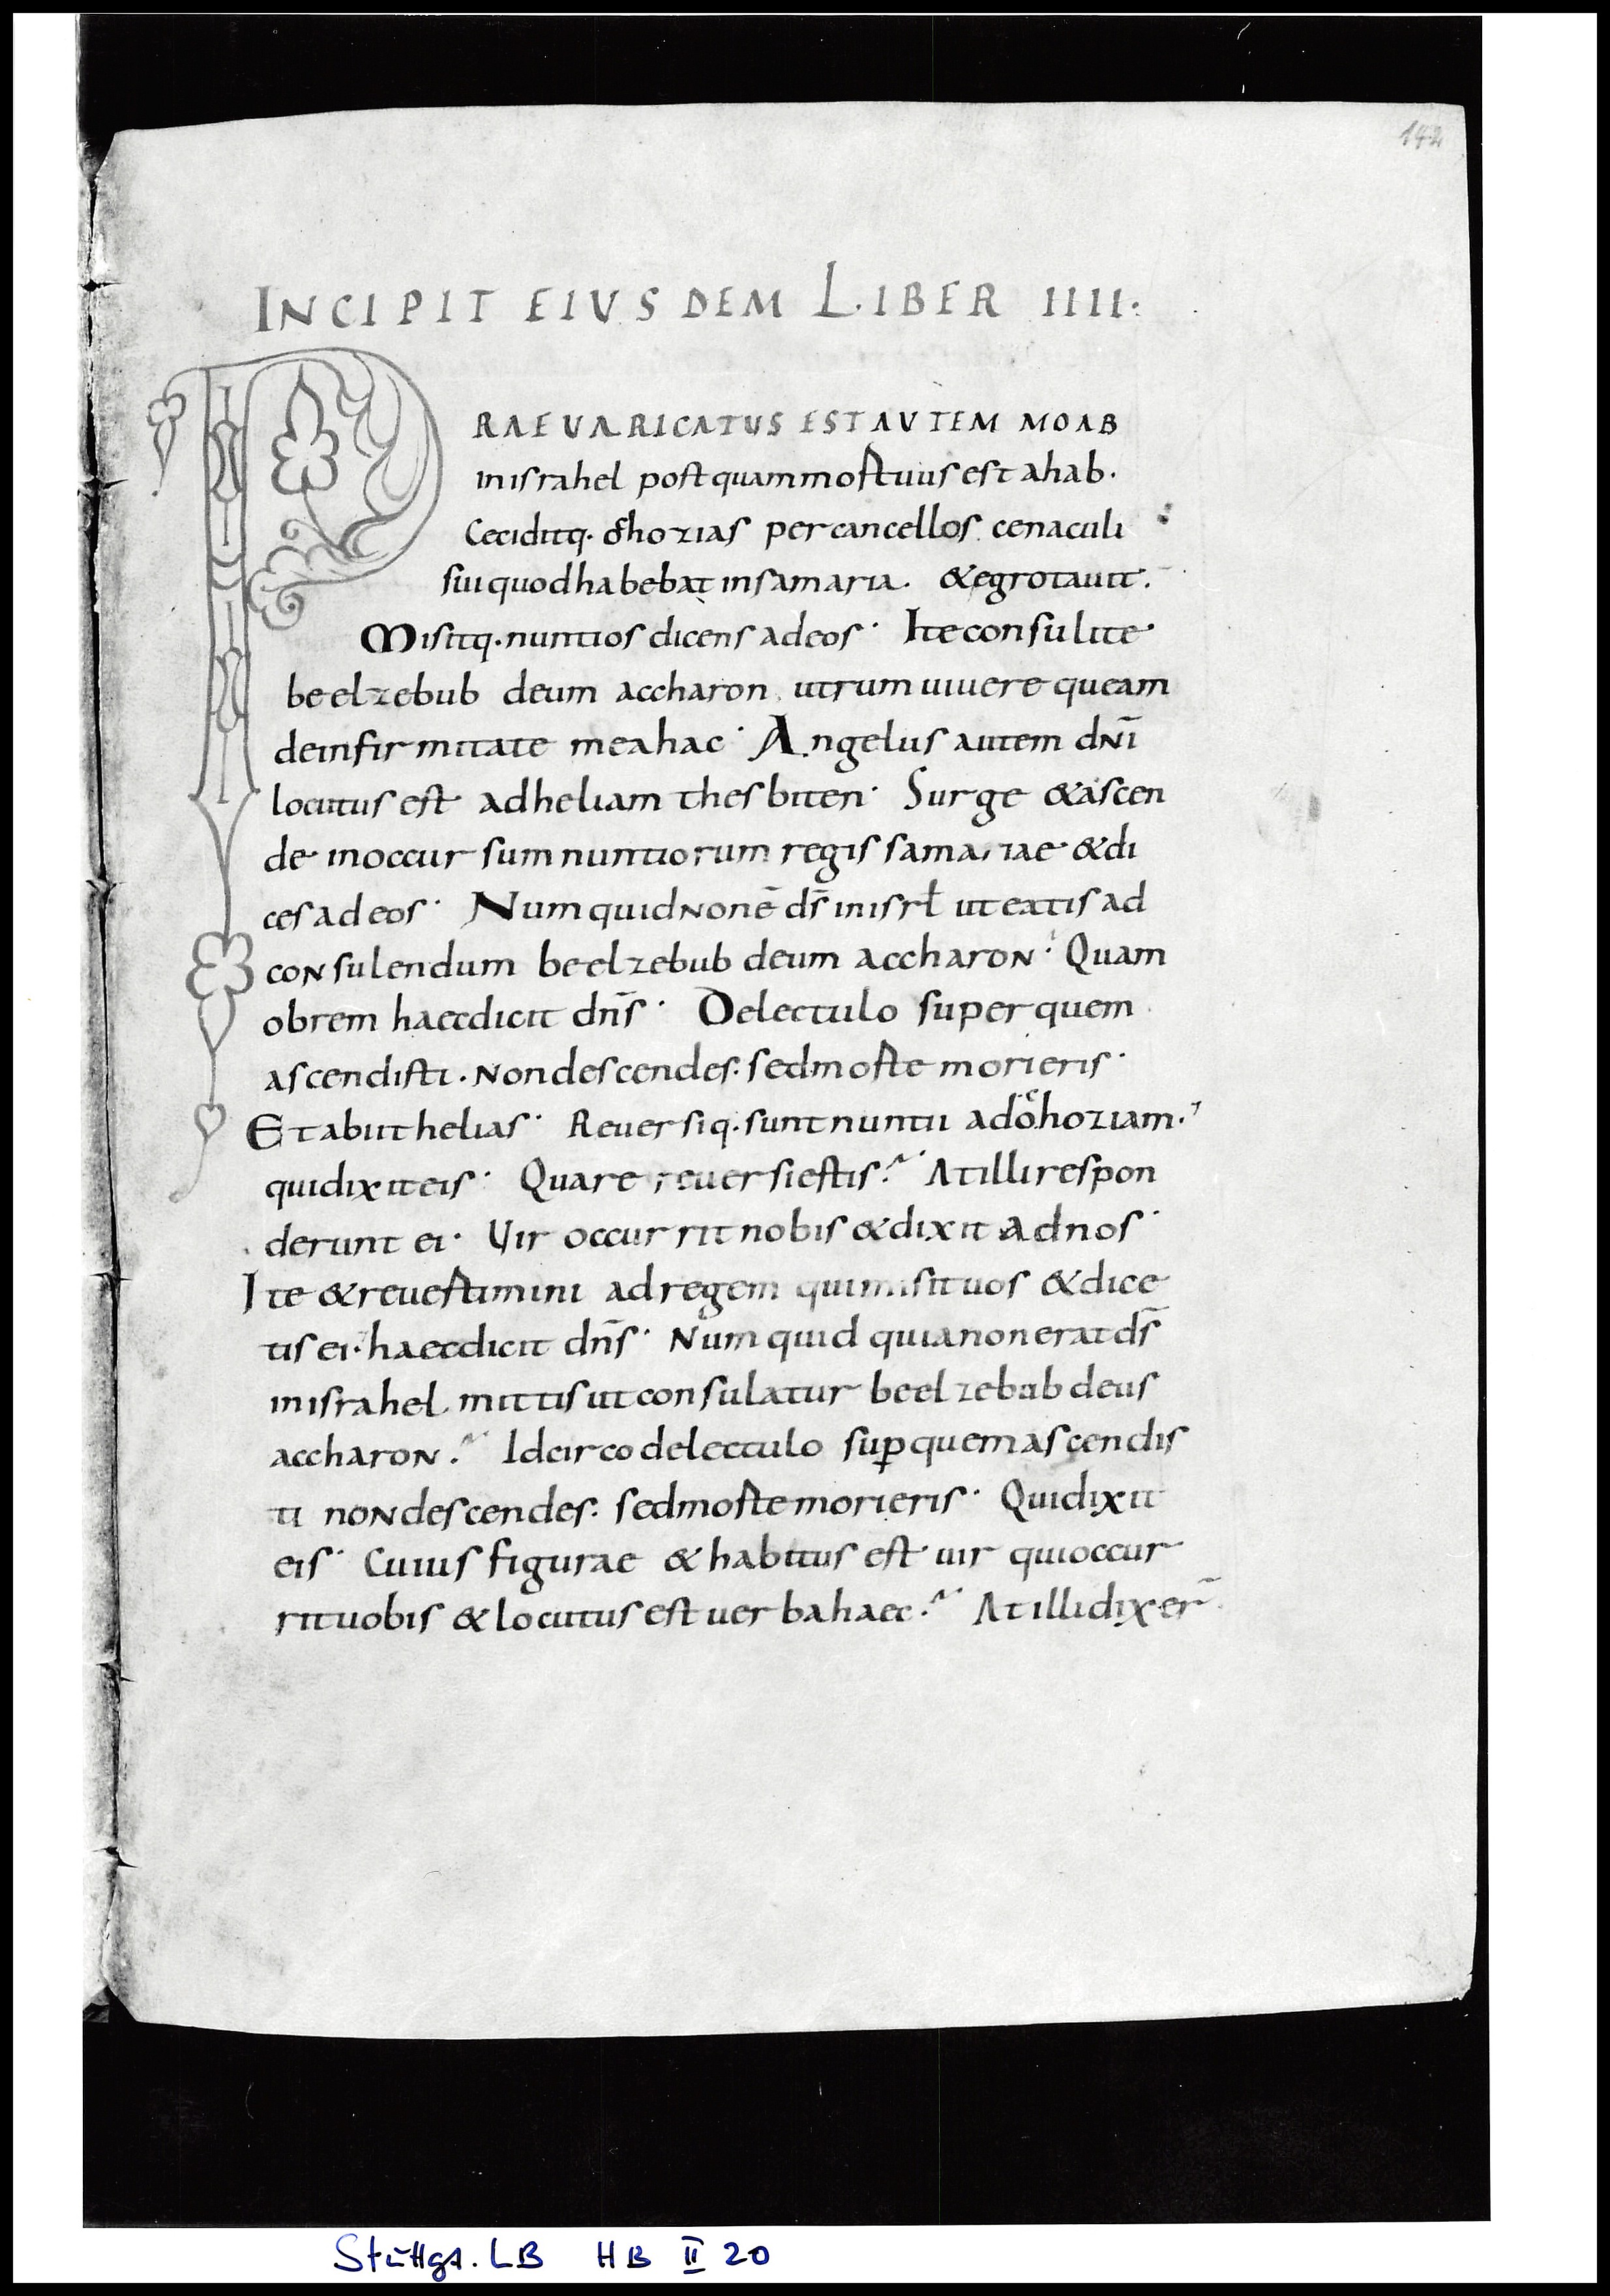 142
INCIPIT EIUSDEM LIBER IIII:
PRAEVARICATUS EST AUTEM MOAB
in israhel postquam mortuus est ahab.
Ceciditq. ohozias per cancellos cenaculi
sui quod habebat in samaria. & egrotauit.
Misitq. nuntios dicens ad eos· Ite consulite
beelzebub deum accharon utrum uiuere queam
de infirmitate mea hac· Angelus autem dnī
locutus est ad heliam thesbiten· Surge & ascen
de in occursum nuntiorum regis samariae & di
ces ad eos· Numquid non ē d̄s in isrł ut eatis ad
consulendum beelzebub deum accharon· Quam
obrem haec dicit dn̄s· De lectulo super quem
ascendisti. non descendes. sed morte morieris·
Et abiit helias· Reuersiq. sunt nuntii ad ohoziam.
qui dixit eis· Quare reuersi estis? At illi respon
derunt ei· Vir occurrit nobis & dixit ad nos·
Ite & reuertimini ad regem qui misit uos & dice
tis ei. haec dicit dn̄s· Numquid quia non erat d̄s
in israhel mittis ut consulatur beelzebub deus
accharon? Idcirco de lectulo suꝑ quem ascendis
ti non descendes. sed morte morieris· Qui dixit
eis· Cuius figurae & habitus est uir qui occur
rit uobis & locutus est uerba haec? At illi dixer̄
Stuttgt. LB HB II 20